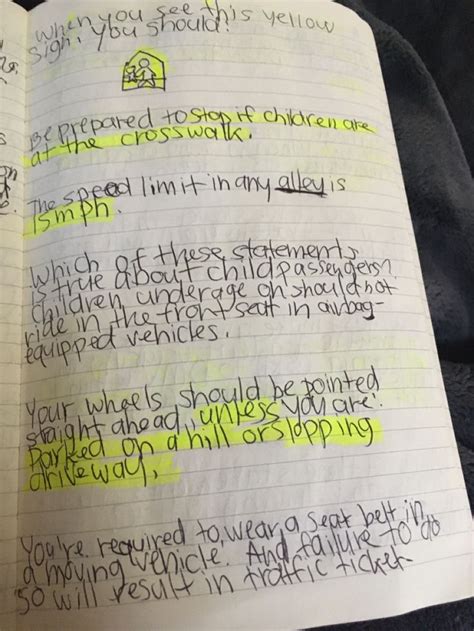 When you see this yellow
sign, you should?
Be prepared to stop if children are
at the crosswalk.
The speed limit in any alley is
15mph.
Which of these statements
is true about child passengers?
Children underage on should not
ride in the front seat in airbag-
equipped vehicles.
Your wheels should be pointed
straight ahead, unless you are:
Parked on a hill or slopping
driveway.
You're required to wear a seat belt in
a moving vehicle. And failure to do
so will result in traffic ticket